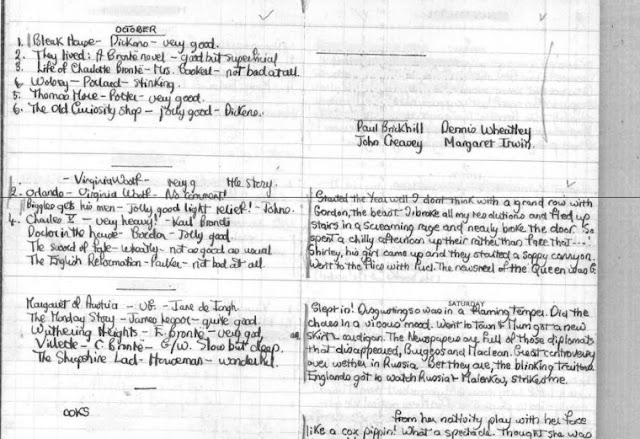 OCTOBER
1. Bleak House - Dickens - very good.
2. They lived: A Brontë novel - good but superficial
3. Life of Charlotte Brontë - Mrs. Gaskell - not bad at all.
4. Wolsey - Pollard - stinking.
5. Thomas More - Potter - very good.
6. The Old Curiosity Shop - jolly good - Dickens.
Paul Brickhill Dennis Wheatley
John Creasey Margaret Irwin.
- Virginia Woolf - very g the story.
2. Orlando - Virginia Woolf - No comment!
Biggles gets his men - Jolly good light relief! - Johns.
4. Charles V - very heavy! - Karl Brandi
Doctor in the house - Gordon - Jolly good
The sword of fate - Wheatly - not as good as usual
The English Reformation - Parker - not bad at all.
Margaret of Austria - VG. - Jane de Iongh.
The Monday Story - James Leasor - quite good
Wuthering Heights - E. Bronte - very good,
Villette - C Brontë - G/W. Slow but deep.
The Shropshire Lad - Houseman - wonderful.
OOKS
Started the Year well I don't think with a grand row with
Gordon, the beast. I broke all my resolutions and fled up
stairs in a screaming rage and nearly broke the door. So
spent a chilly afternoon up their rather than face that ....!
Shirley, his girl came up and they started a soppy carryon.
Went to the Flics with Puel. The newsreel of the Queen was G
SATURDAY
Slept in! Disgusting so was in a flaming temper. Did the
chores in a vicious mood. Went to Town & Mum got a new
skirt & cardigan. The Newspapers are full of those diplomats
that disappeared, Burgess and Maclean. Great controversy
over wether in Russia. Bet they are, the blinking Traitors
Englands got to watch Russia & Malenkov, strikes me.
from her nativity play with her face
like a cox pippin! What a spectacle. Thought she was